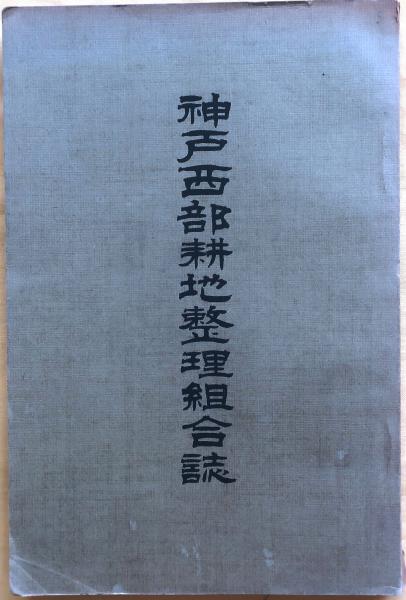 神戸西部耕地整理組合誌